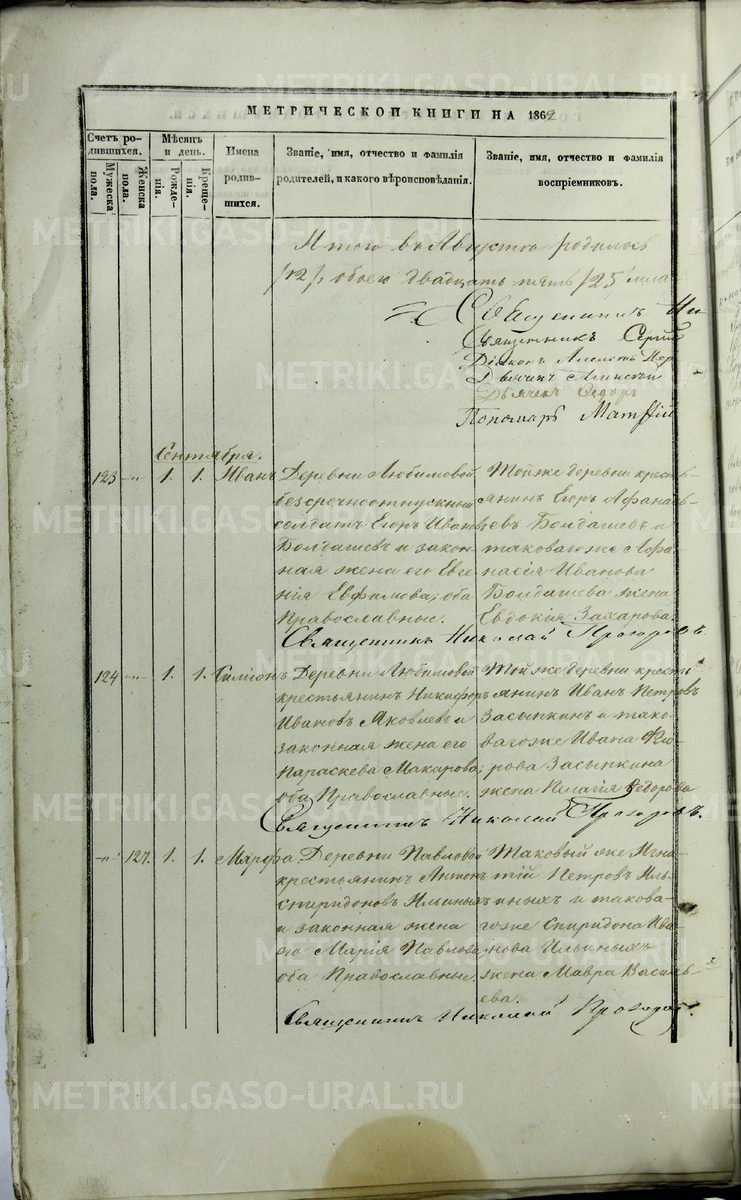 МЕТРИЧЕСКОЙ КНИГИ НА 1862
Счетъ ро-
дившихся.
Мужеска
пола.
Женска
пола.
Мѣсяцъ
и день.
Рожде-
нія.
Креще-
нія.
Имена
родив-
шихся.
Званіе, имя, отчество и фамилія
родителей, и какого вѣроисповѣданія.
Званіе, имя, отчество и фамилія
воспріемниковъ.
Итого въ Августѣ родилось
/12/, обоего двадцать пять /25
Священникъ Ни
Священникъ Сергій
Діаконъ Алексѣй
Дьячекъ
Дьячекъ Ѳедоръ
Пономарь Матѳій
Сентября.
123 -"- 1. 1. Иванъ
Деревни Любимовой
безсрочноотпускный
солдатъ Егоръ Ивановъ
Болдашевъ и закон
ная жена его Евге
нія Евфимова; оба
Православные.
Тойже деревни кресть-
янинъ Егоръ Афанась-
евъ Болдашевъ и
таковагоже Афа
насія Иванова
Болдашева жена
Евдокія Захарова.
Священникъ Николай Прохоровъ
124 -"- 1. 1. Симеонъ
Деревни Любимовой
крестьянинъ Никифоръ
Ивановъ Яковлевъ и
законная жена его
Параскева Макарова;
оба Православные.
Тойже деревни кресть
янинъ Иванъ Петровъ
Засыпкинъ и тако-
вагоже Ивана Фло-
рова Засыпкина
жена Пелагія Ѳедорова
Священникъ Николай Прохоровъ.
-"- 127. 1. 1. Марфа.
Деревни Павловой
крестьянинъ Антонъ
Спиридоновъ Ильиныхъ
и законная жена
его Марія Павлова
оба Православные.
Таковый же Игна-
тій Петровъ Иль-
иныхъ и такова-
гоже Спиридона Ива-
нова Ильиныхъ
жена Мавра Василь-
ева.
Священникъ Николай Прохоров
METRIKI.GASO-URAL.RU